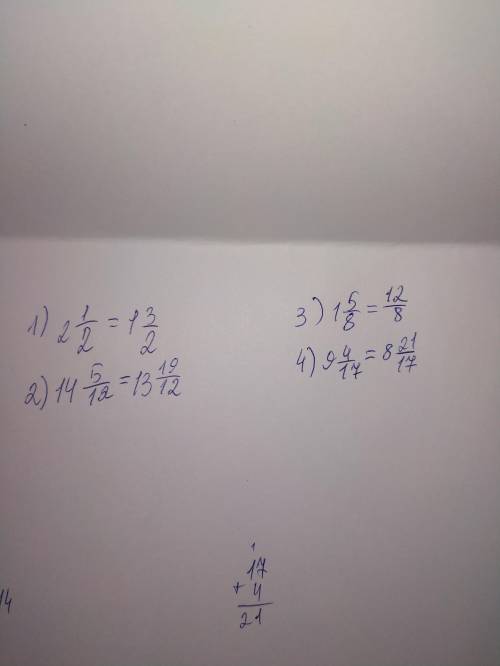 1) 2 1/2 = 1 3/2
2) 14 5/12 = 13 19/12
3) 1 5/8 = 12/8
4) 9 4/17 = 8 21/17
14
1
17
+ 4
21